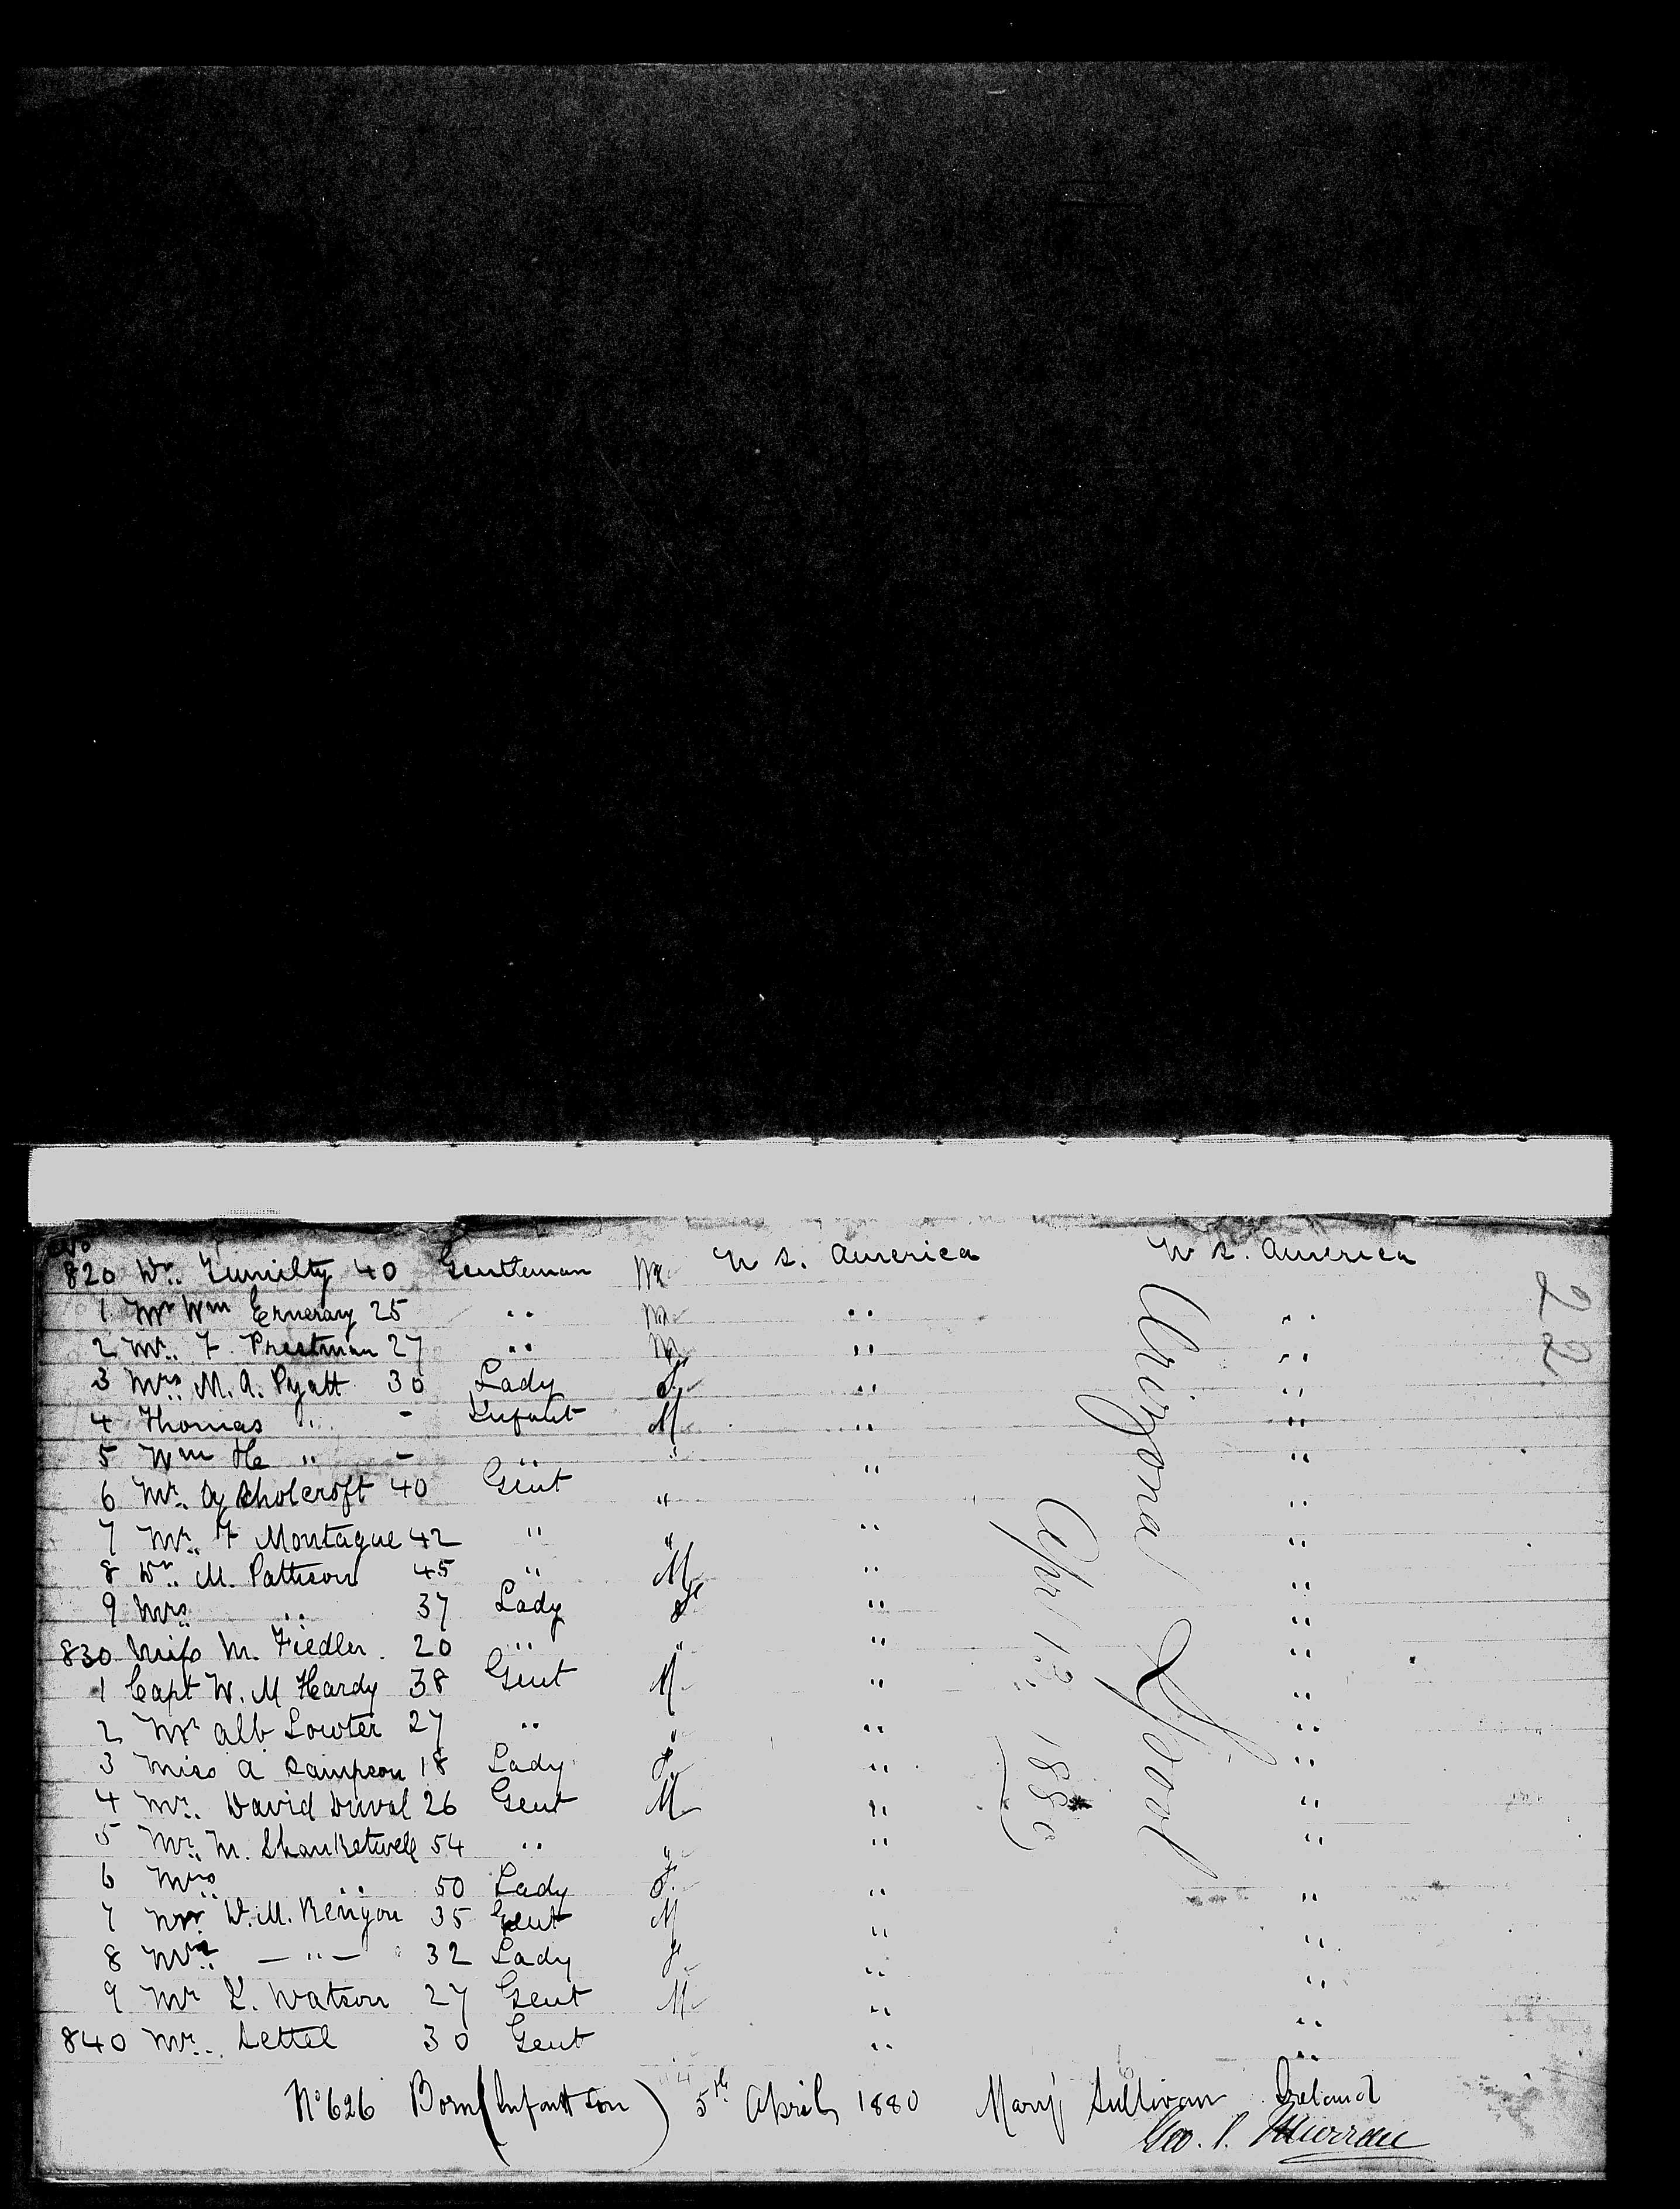 No
820 Dr. Lumilty 40 Gentleman M U S. America U S. America
1 Mr Wm Ernerary 25 " M " "
2 Mr. F. Prestman 27 " M " "
3 Mrs. M. A. Pyatt 30 Lady F " "
4 Thomas " - Infant M " "
5 Wm He " - " " " "
6 Mr. Scholcroft 40 Gent " " "
7 Mr. F Montague 42 " " " "
8 Dr. M. Pattison 45 " M " "
9 Mrs " 37 Lady F " "
830 Miss M. Fiedler. 20 " " " "
1 Capt W. M Hardy 38 Gent M " "
2 Mr Alb Lowter 27 " " " "
3 Miss A Sampson 18 Lady F " "
4 Mr. David Duval 26 Gent M " "
5 Mr. M. Shanketwell 54 " " " "
6 Mrs " 50 Lady F. " "
7 Mr. W. M. Kenyon 35 Gent M " "
8 Mrs — " — 32 Lady F " "
9 Mr L. Watson 27 Gent M " "
840 Mr. Settel 30 Gent " "
No 626 Born (Infant Son) 5th April, 1880 Mary Sullivan Ireland
Geo. S. Murray
Arizona L'pool
Apr 13 1880
22